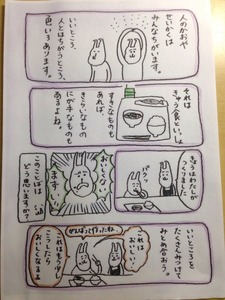 人のかおや
せいかくは
みんなちがいます。
いいところ、
人とはちがうところ、
色いろあります。
それは
きゅう食といっしょ。
すきなものも
あれば、
きらいなもの
にが手なものも
あるよね。
きょうはわたしが
つくりました
パクッ
おいしく
ない
まずい!
このことばは
どう思いますか?
いいところを
たくさんみつけて
みとめ合おう。
これは
おいしい!
がんばって作ったね。
これはもう少し
こうしたら
おいしくなるよ